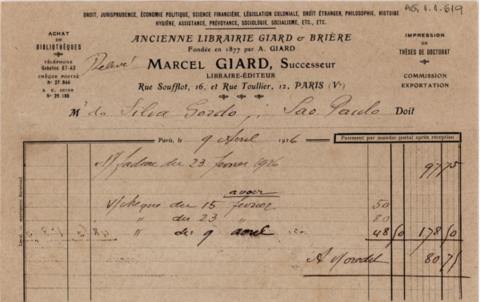 AG.1.1.619
DROIT, JURISPRUDENCE, ÉCONOMIE POLITIQUE, SCIENCE FINANCIÈRE, LÉGISLATION COLONIALE, DROIT ÉTRANGER, PHILOSOPHIE, HISTOIRE
HYGIÈNE, ASSISTANCE, PRÉVOYANCE, SOCIOLOGIE, SOCIALISME, ETC., ETC.
ACHAT
DE
BIBLIOTHÈQUES
TÉLÉPHONE
Gobelins 07-43
CHÈQUE POSTAL
Nº 27.946
R. C. SEINE
Nº 29.188
Relevé
ANCIENNE LIBRAIRIE GIARD & BRIÈRE
Fondée en 1877 par A. GIARD
MARCEL GIARD, Successeur
LIBRAIRE-ÉDITEUR
Rue Soufflot, 16, et Rue Toullier, 12, PARIS (Vᵉ)
IMPRESSION
DE
THÈSES DE DOCTORAT
COMMISSION
EXPORTATION
M da Silva Gordo, São Paulo Doit
Paris, le 9 Avril 1926
Payement par mandat postal après réception
M/facture du 23 février 1926 97 75
avoir
V/chèque du 15 février 50
" du 23 " 80
" du 9 avril 48 50 178 50
80 75